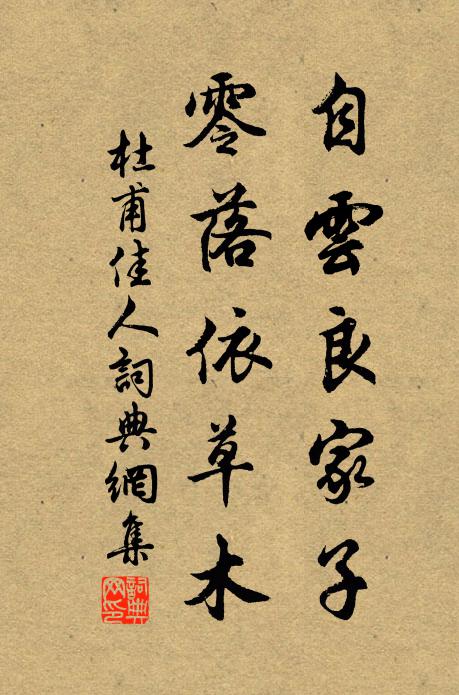 自雲良家子
零落依草木
杜甫佳人詞典網集
詞典网印